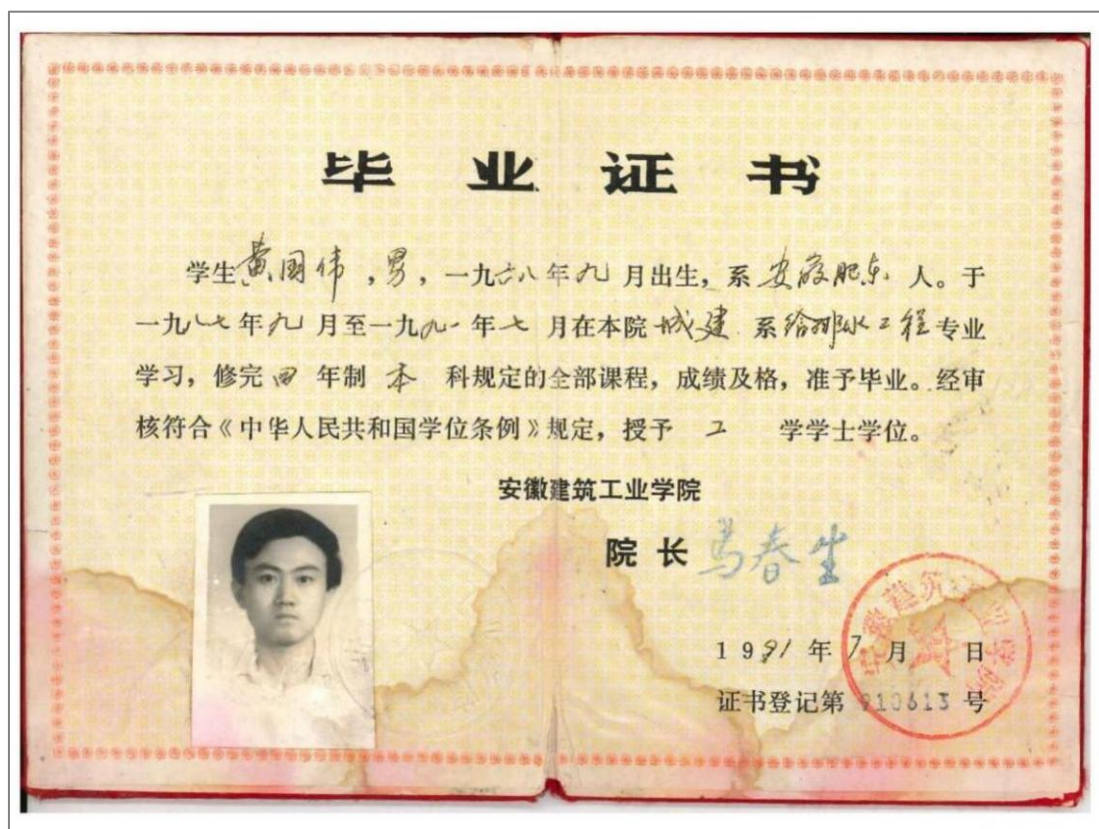 毕业证书
学生黄国伟,男,一九六八年九月出生,系安徽肥东人。于
一九八七年九月至一九九一年七月在本院城建系给排水工程专业
学习,修完四年制本科规定的全部课程,成绩及格,准予毕业。经审
核符合《中华人民共和国学位条例》规定,授予工学学士学位。
安徽建筑工业学院
院长 马春生
安徽建筑工业学院
1991年7月 日
证书登记第910613号